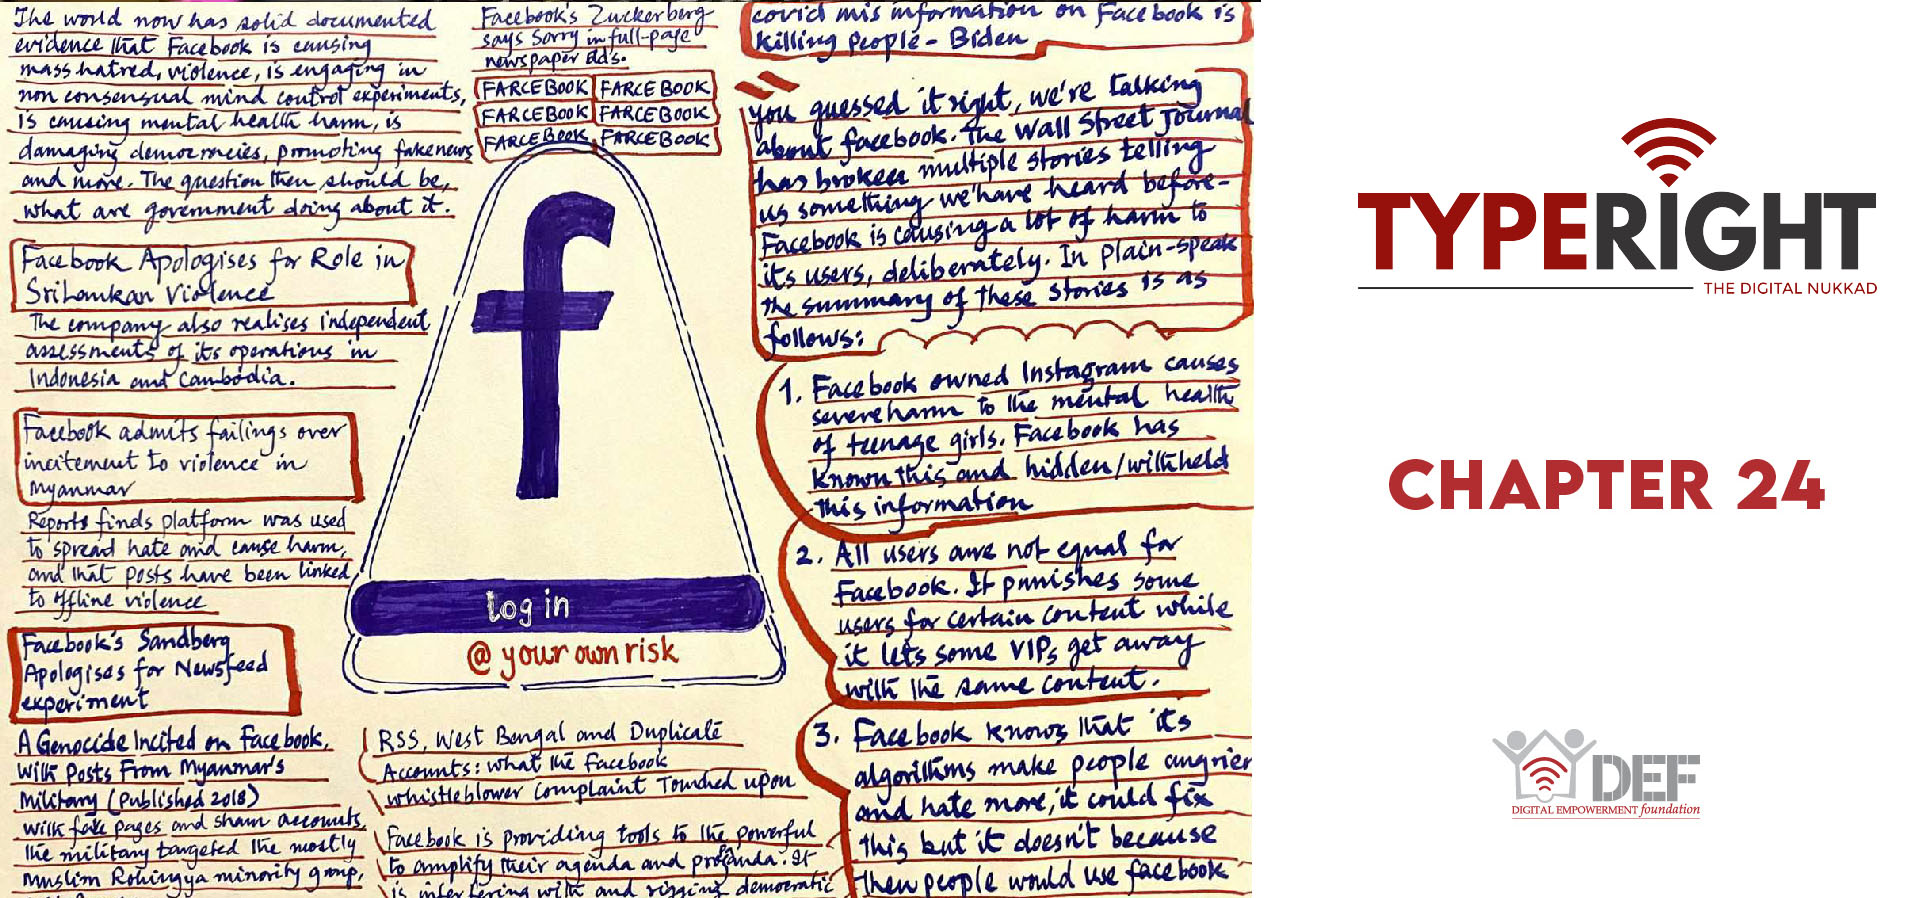 The world now has solid documented
evidence that Facebook is causing
mass hatred, violence, is engaging in
non consensual mind control experiments,
is causing mental health harm, is
damaging democracies, promoting fakenews
and more. The question then should be,
what are government doing about it.
Facebook Apologises for Role in
Srilankan Violence
The company also realises independent
assessments of its operations in
Indonesia and Cambodia.
Facebook admits failings over
incitement to violence in
Myanmar
Reports finds platform was used
to spread hate and cause harm,
and that posts have been linked
to offline violence
Facebook's Sandberg
Apologises for Newsfeed
experiment
A Genocide Incited on Facebook,
With Posts From Myanmar's
Military (Published 2018)
With fake pages and sham accounts,
the military targeted the mostly
Muslim Rohingya minority group,
Facebook's Zuckerberg
says Sorry in full-page
newspaper ads.
FARCEBOOK FARCEBOOK
FARCEBOOK FARCEBOOK
FARCEBOOK FARCEBOOK
f
log in
@ your own risk
RSS, West Bengal and Duplicate
Accounts: what the Facebook
whistleblower Complaint Touched upon
Facebook is providing tools to the powerful
to amplify their agenda and
It
is interfering with and rigging democratic
covid mis information on Facebook is
killing people - Biden
you guessed it right, we're talking
about facebook. The Wall Street Journal
has broken multiple stories telling
us something we have heard before-
Facebook is causing a lot of harm to
its users, deliberately. In plain-speak
the summary of these stories is as
follows:
1. Facebook owned Instagram causes
severe harm to the mental health
of teenage girls. Facebook has
known this and hidden/withheld
this information
2. All users are not equal for
Facebook. It punishes some
users for certain content while
it lets some VIPs get away
with the same content.
3. Facebook knows that it's
algorithms make people angrier
and hate more, it could fix
this but it doesn't because
then people would use facebook
TYPERIGHT
THE DIGITAL NUKKAD
CHAPTER 24
DEF
DIGITAL EMPOWERMENT foundation